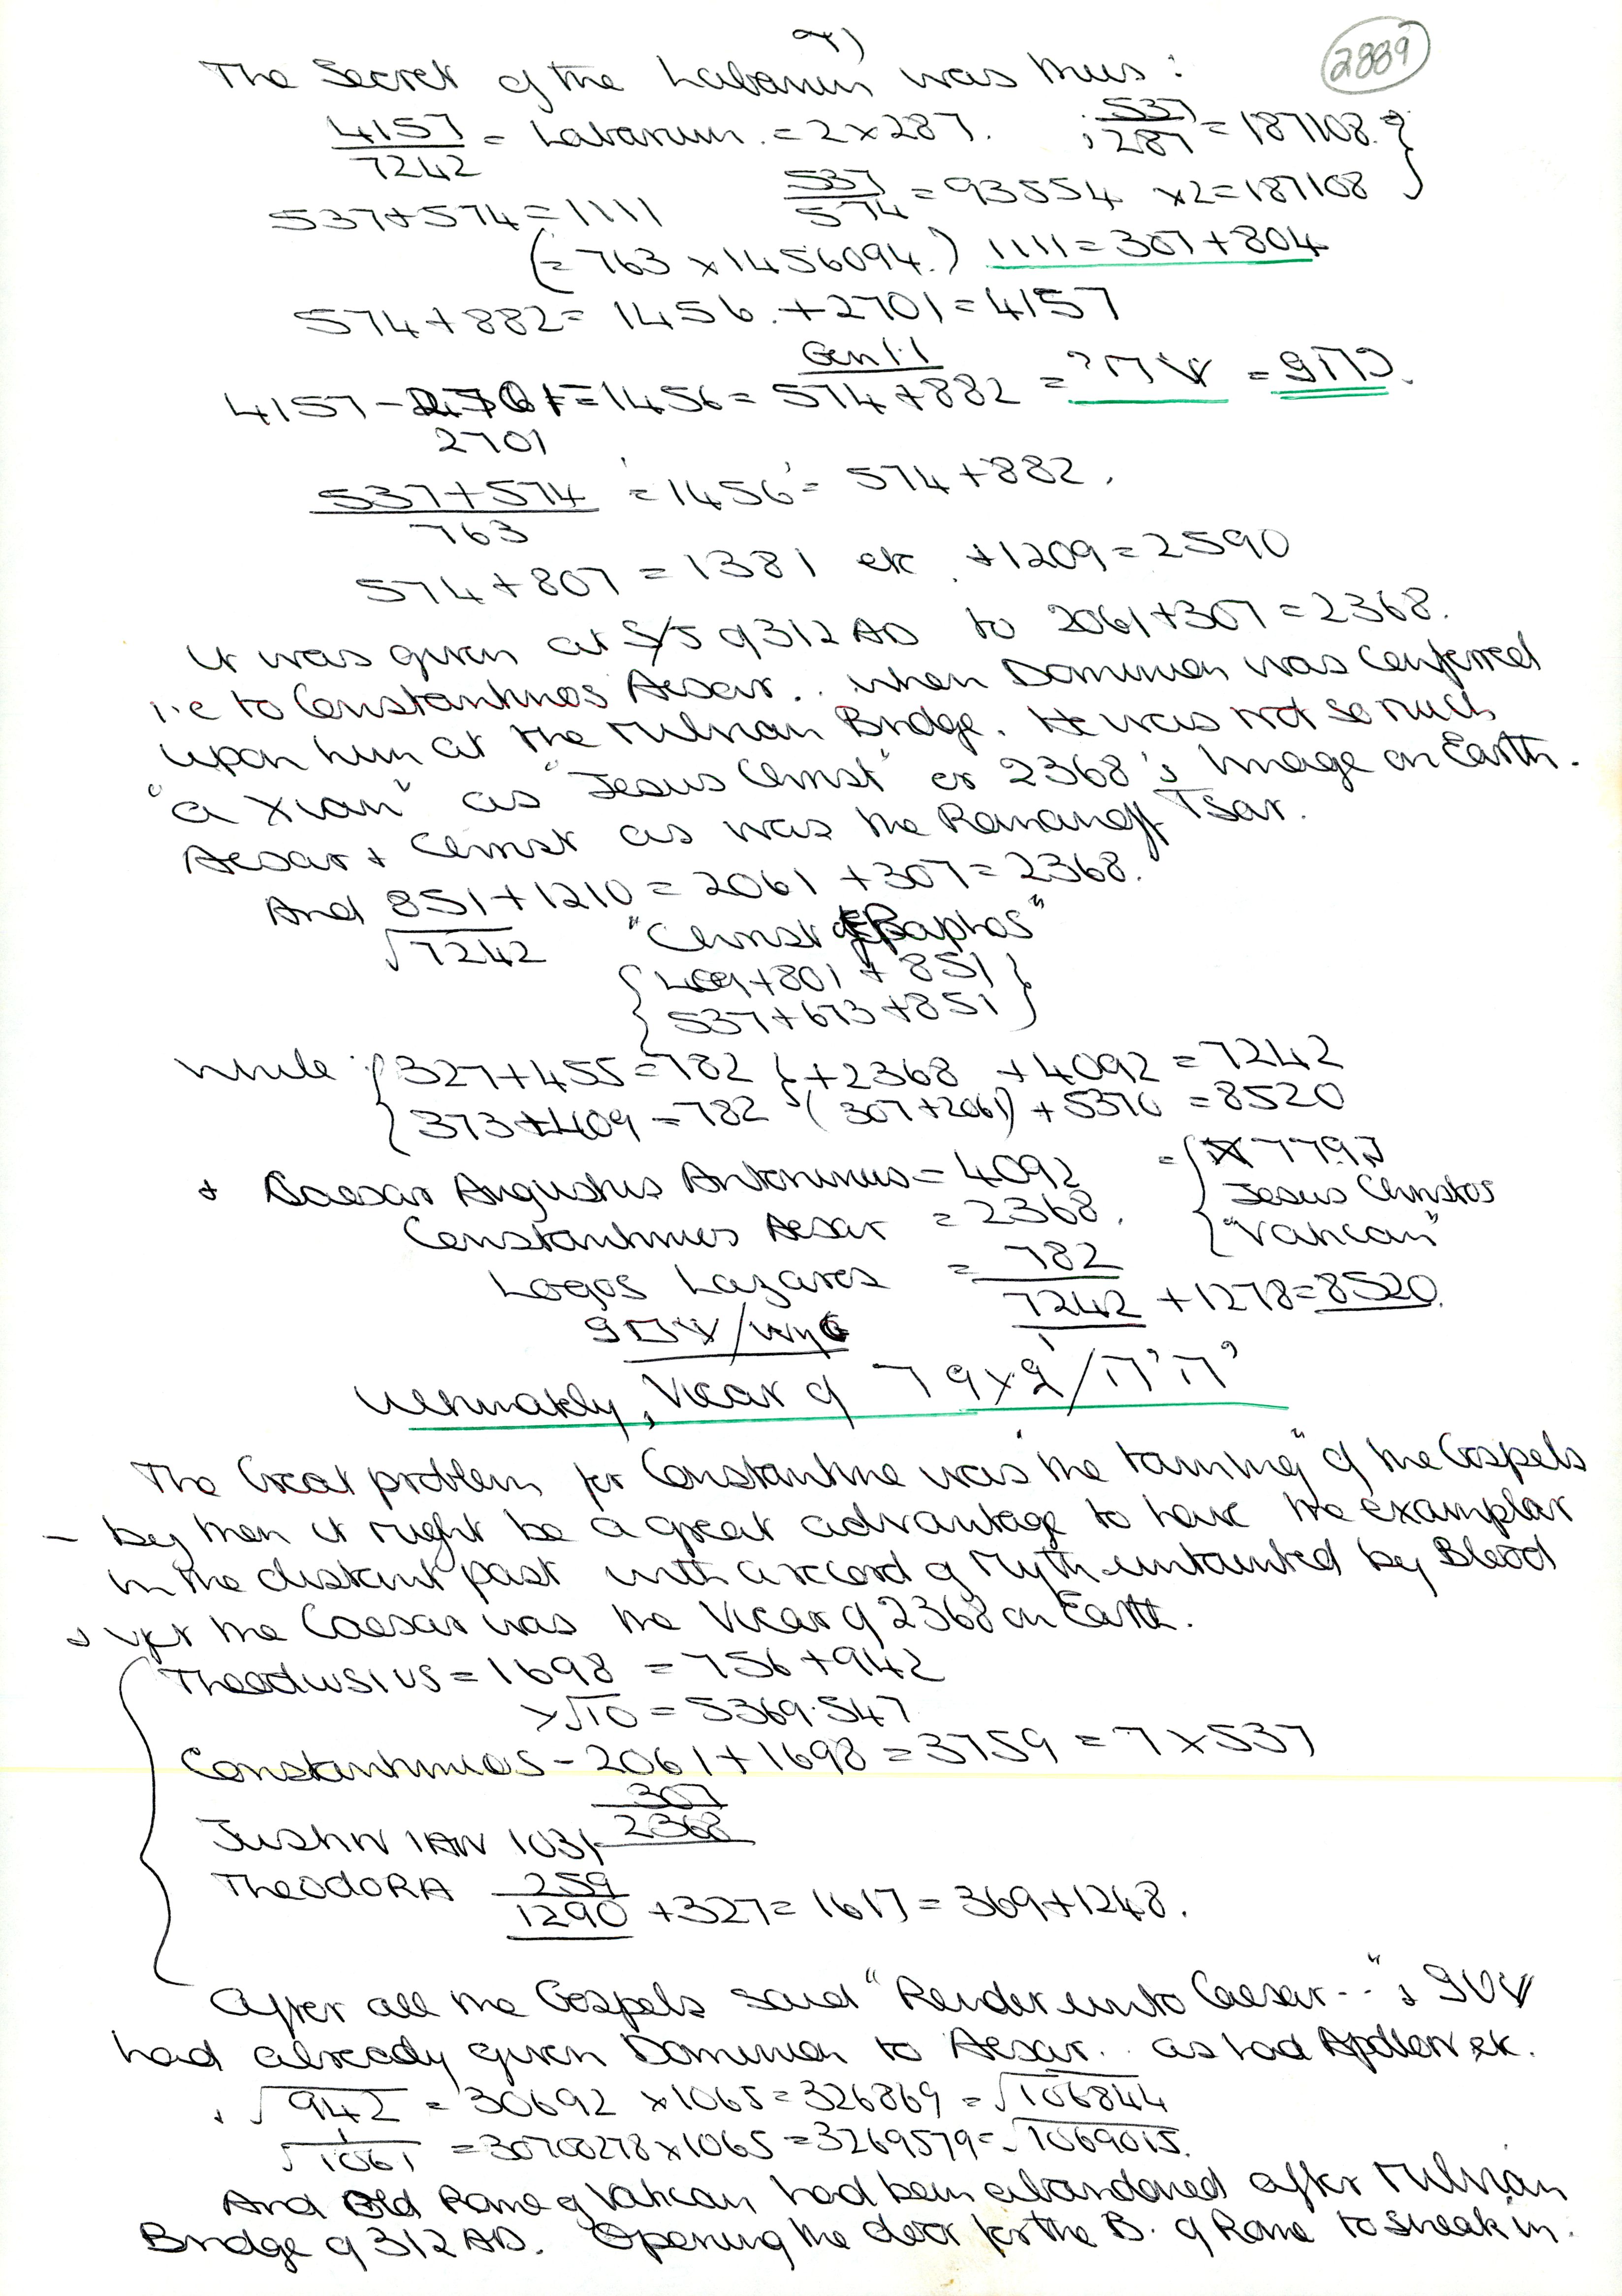 7)
2889
The Secret of the Labarum was thus:
4157/7242 = Labarum. = 2x287. ; 537/287 = 187108. }
537+574=1111 537/574 = 93554 x2=187108
(=763 x1456094.) 1111=307+804
574+882= 1456. +2701=4157
Gen 1.1
4157- =1456= 574+882 =
2701
537+574/763 = 1456 = 574+882.
574+807 = 1381 etc. +1209=2590
It was given at S/S of 312 AD to 2061+307=2368.
i.e to Constantinos Aesar.. when Dominion was Conferred
upon him at the Milvian Bridge. He was not so much
"a Xian" as "Jesus Christ" or 2368's Image on Earth.
Aesar + Christ as was the Romanoff Tsar.
And 851+1210 = 2061 +307=2368.
√7242 "Christ of Baphos"
{409+801+851}
{537+673+851}
While {327+455=782 } +2368 +4092 = 7242
{373+409=782 (307+2061) +5370 =8520
+ Caesar Augustus Antoninus = 4092
Jesus Christos
Constantinos Aesar = 2368.
"Vatican"
Logos Lazaros = 782
7242 +1278=8520.
Ultimately, Vicar of
The Great problem for Constantine was "the taming" of the Gospels
- by then it might be a great advantage to have the examplar
in the distant past with a record of Myth untainted by Blood
& yet the Caesar was the Vicar of 2368 on Earth.
Theodosius = 1698 = 756+942
x√10 = 5369.547
Constantinos - 2061+1698=3759 = 7x537
307
2368
Justin IAN 1031
TheodoRA 259
1290 +327= 1617 = 369+1248.
After all the Gospels said "Render unto Caesar--" &
had already given Dominion to Aesar.. as had Apollon etc.
√942 = 30692 x1065=326869 = √106844
√1061 = 30700278x1065 =3269579=√1069015.
And Old Rome of Vatican had been abandoned after Milvian
Bridge of 312 AD. Opening the door for the B. of Rome to sneak in.